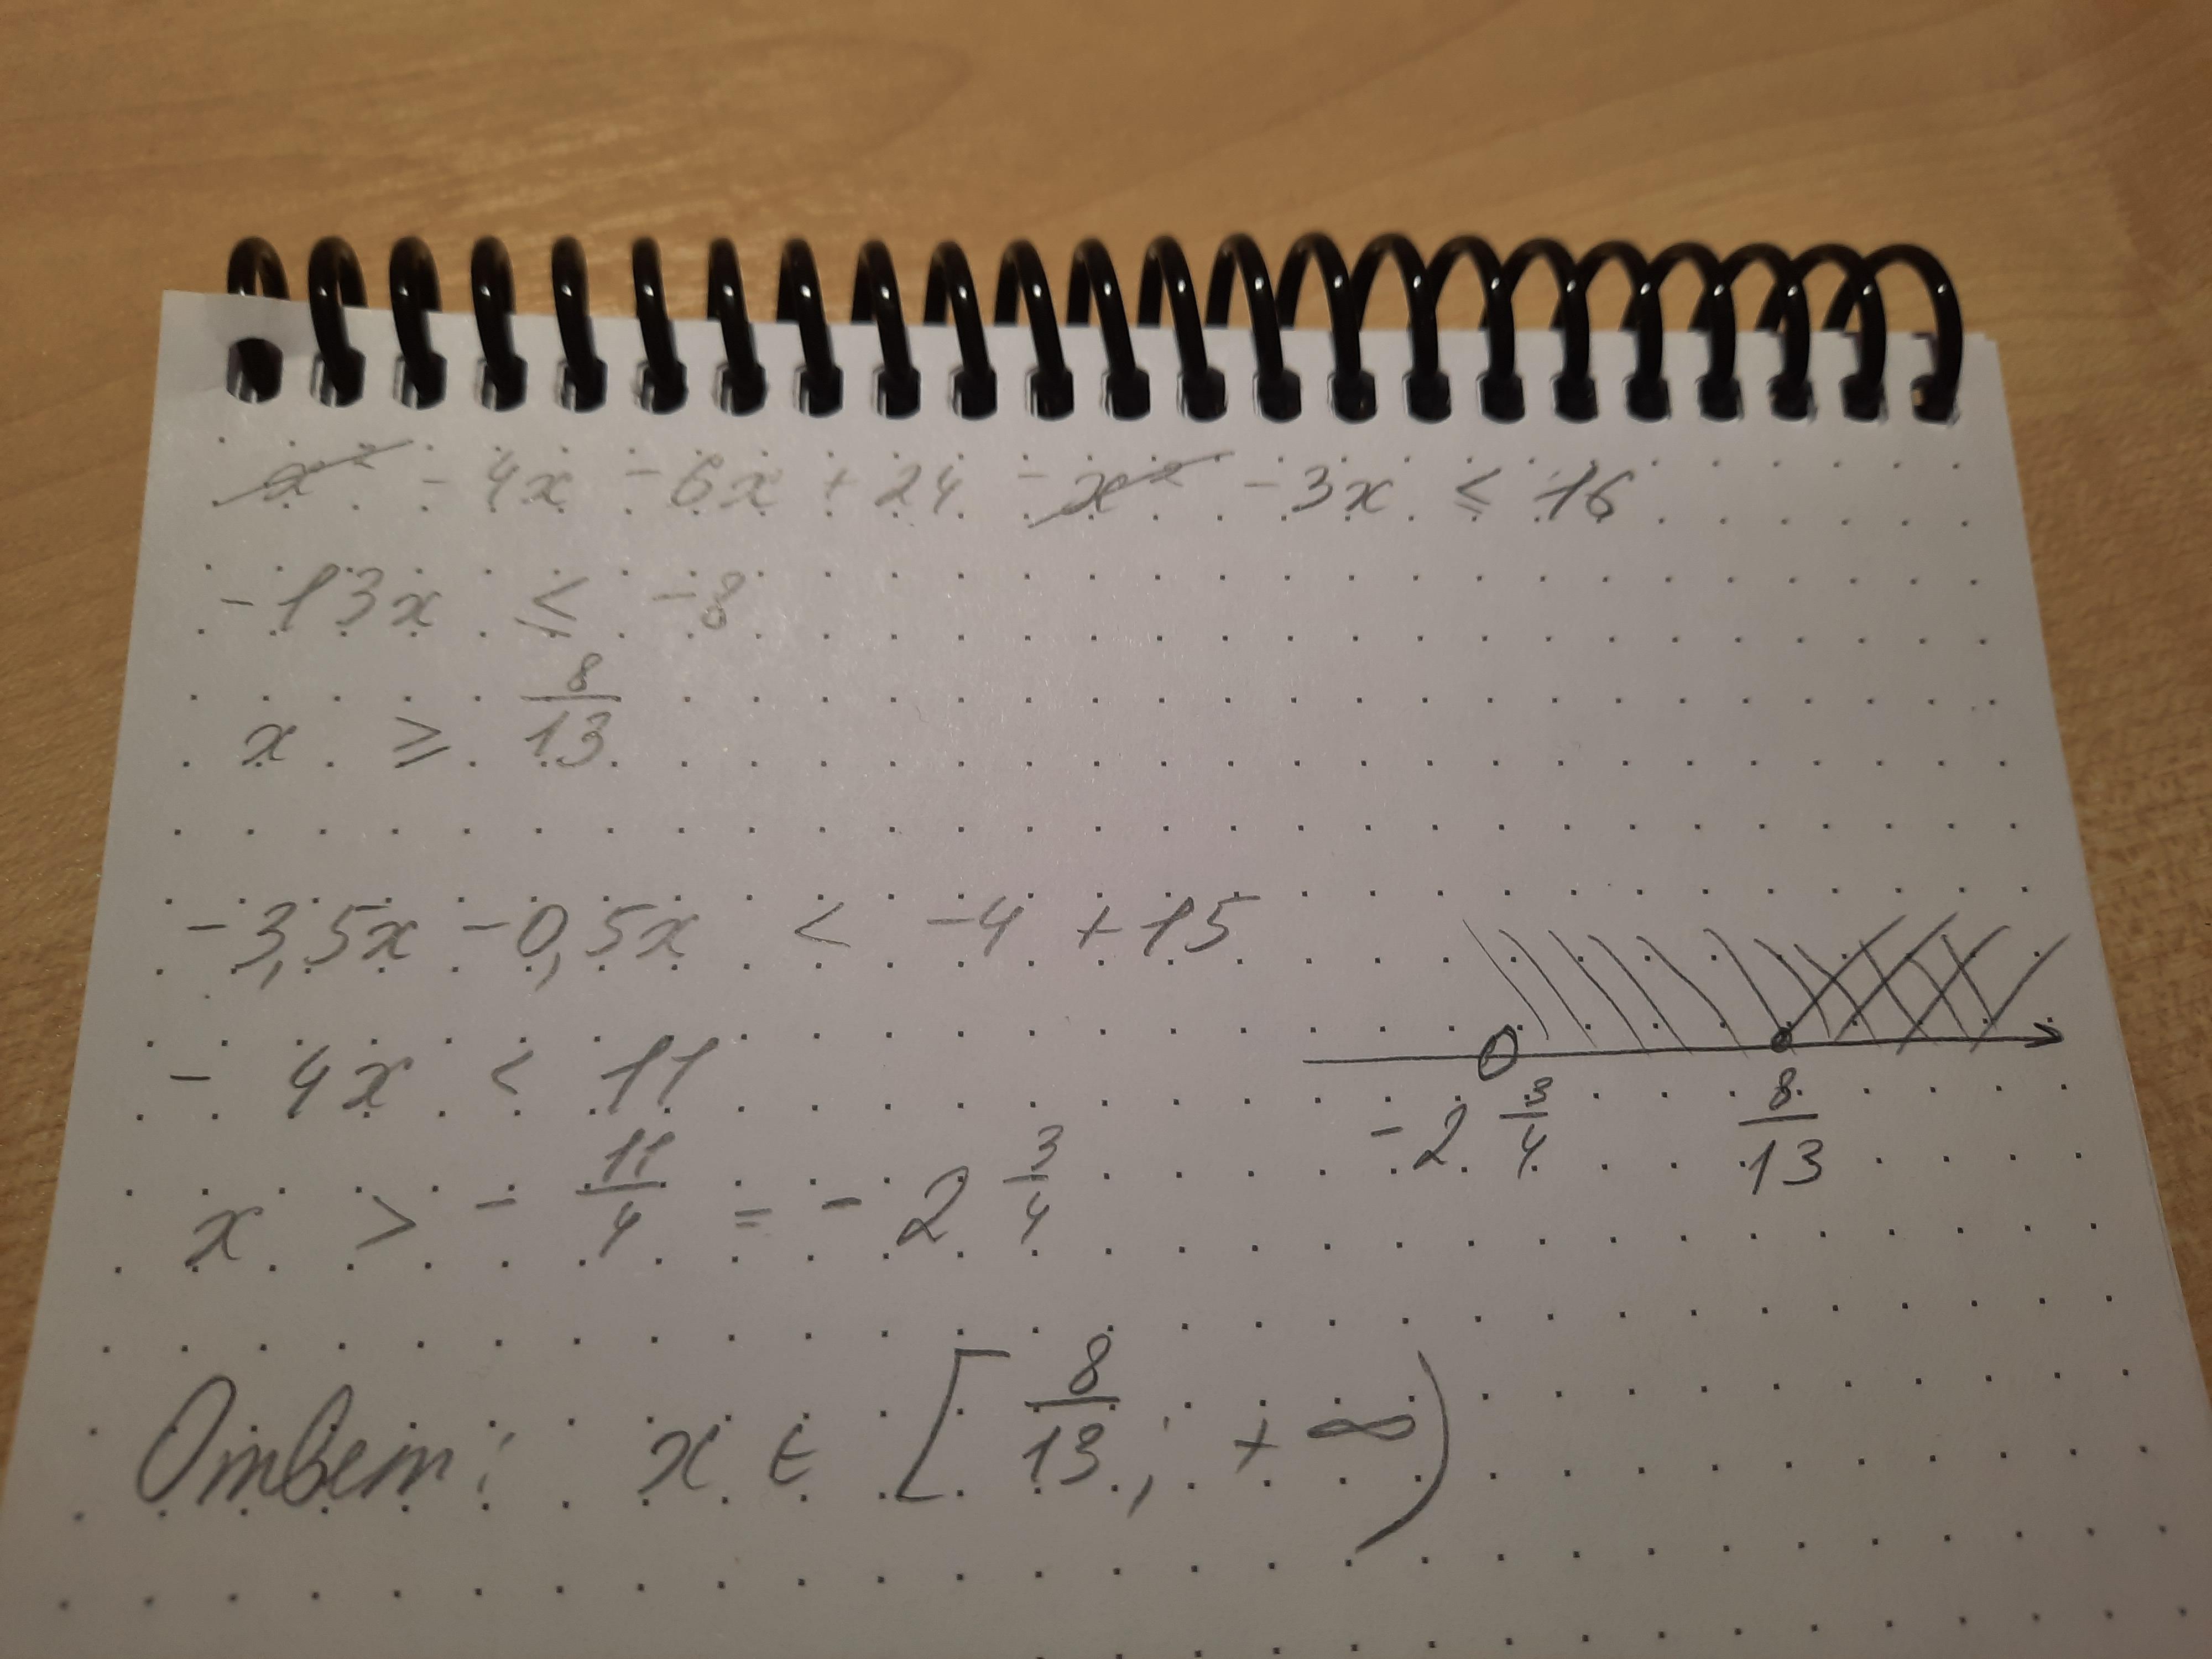 x² - 4x - 6x + 24 - x² - 3x ≤ 16
-13x ≤ -8
x ≥ 8/13
-3,5x - 0,5x < -4 + 15
-4x < 11
x > - 11/4 = - 2 3/4
-2 3/4 8/13
Ответ: x ∈ [8/13; +∞)